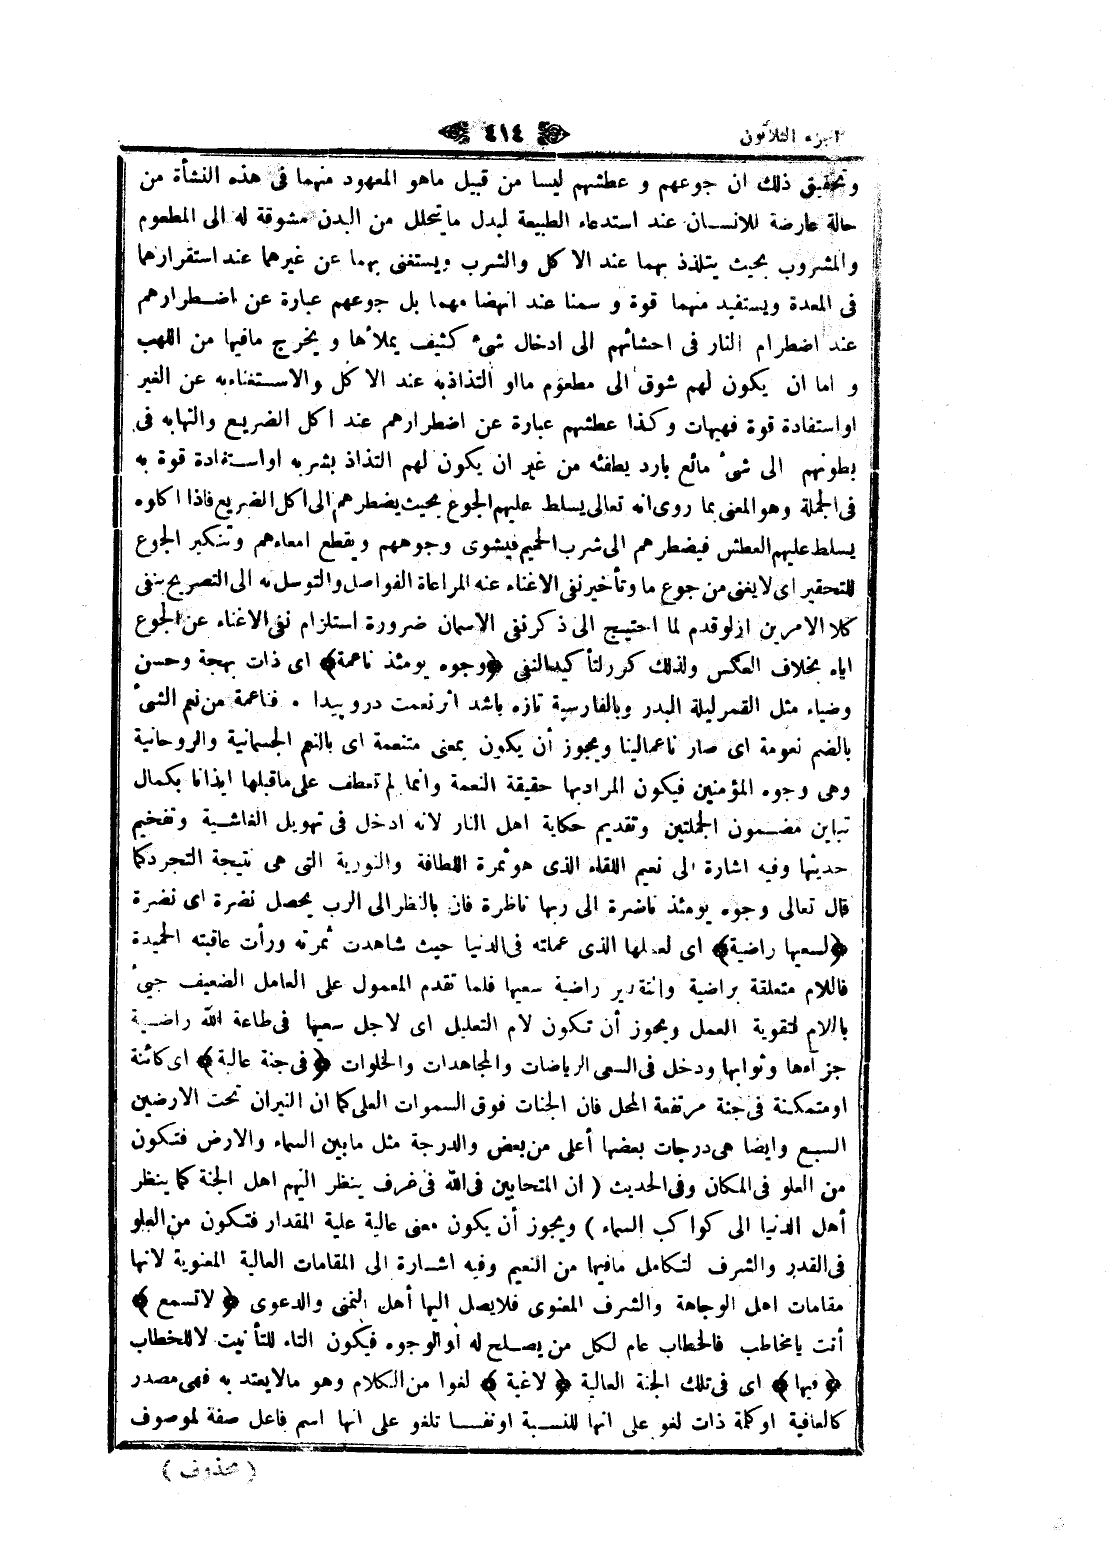 الجزء الثلاثون ٤١٤
وتحقيق ذلك ان جوعهم و عطشهم ليسا من قبيل ماهو المعهود منهما فى هذه النشأة من
حالة عارضة للانسان عند استدعاء الطبيعة لبدل مايتحلل من البدن مشوقة له الى المطعوم
والمشروب بحيث يتلذذ بهما عند الاكل والشرب ويستغنى بهما عن غيرهما عند استقرارهما
فى المعدة ويستفيد منهما قوة و سمنا عند انهضامهما بل جوعهم عبارة عن اضطرارهم
عند اضطرام النار فى احشائهم الى ادخال شىء كثيف يملأها و يخرج مافيها من اللهب
و اما ان يكون لهم شوق الى مطعوم مااو التذاذبه عند الاكل والاستغناءبه عن الغير
اواستفادة قوة فهيهات وكذا عطشهم عبارة عن اضطرارهم عند اكل الضريع والتهابه فى
بطونهم الى شىء مائع بارد يطفئه من غير ان يكون لهم التذاذ بشربه اواستفادة قوة به
فى الجملة وهو المعنى بما روى انه تعالى يسلط عليهم الجوع بحيث يضطرهم الى اكل الضريع فاذا اكلوه
يسلط عليهم العطش فيضطرهم الى شرب الحميم فيشوى وجوههم ويقطع امعاءهم وتنكير الجوع
للتحقير اى لايغنى من جوع ما وتأخير نفى الاغناء عنه المراعاة الفواصل والتوسل به الى التصريح بنفى
كلا الامرين اذلوقدم لما احتيج الى ذكر نفى الاسمان ضرورة استلزام نفى الاغناء عن الجوع
اياه بخلاف العكس ولذلك كرر لتأكيد النفى ﴿وجوه يومئذ ناعمة﴾ اى ذات بهجة وحسن
وضياء مثل القمر ليلة البدر وبالفارسية تازه باشد اثر نعمت درو پيدا . فناعمة من نعم الشىء
بالضم نعومة اى صار ناعمالينا ويجوز أن يكون بمعنى متنعمة اى بالنعم الجسمانية والروحانية
وهى وجوه المؤمنين فيكون المرادبها حقيقة النعمة وانما لم تعطف على ماقبلها ايذانا بكمال
تباين مضمون الجملتين وتقديم حكاية اهل النار لانه ادخل فى تهويل الغاشية وتفخيم
حديثها وفيه اشارة الى نعيم اللقاء الذى هو ثمرة اللطافة والنورية التى هى نتيجة التجرد كما
قال تعالى وجوه يومئذ ناضرة الى ربها ناظرة فان بالنظر الى الرب يحصل نضرة اى نضرة
﴿لسعيها راضية﴾ اى لعملها الذى عملته فى الدنيا حيث شاهدت ثمرته ورأت عاقبته الحميدة
فاللام متعلقة براضية والتقدير راضية سعيها فلما تقدم المعمول على العامل الضعيف جيىء
باللام لتقوية العمل ويجوز أن تكون لام التعليل اى لاجل سعيها فى طاعة الله راضية
جزآءها وثوابها ودخل فى السعى الرياضات والمجاهدات والخلوات ﴿فى جنة عالية﴾ اى كائنة
اومتمكنة فى جنة مرتفعة المحل فان الجنات فوق السموات العلى كما ان النيران تحت الارضين
السبع وايضا هى درجات بعضها أعلى من بعض والدرجة مثل مابين السماء والارض فتكون
من العلو فى المكان وفى الحديث ( ان المتحابين فى الله فى غرف ينظر اليهم اهل الجنة كما ينظر
أهل الدنيا الى كواكب السماء ) ويجوز أن يكون معنى عالية علية المقدار فتكون من العلو
فى القدر والشرف لتكامل مافيها من النعيم وفيه اشارة الى المقامات العالية المعنوية لانها
مقامات اهل الوجاهة والشرف المعنوى فلايصل اليها أهل التمنى والدعوى ﴿ لاتسمع ﴾
أنت يامخاطب فالخطاب عام لكل من يصلح له أوالوجوه فيكون التاء للتأنيث لاللخطاب
﴿ فيها ﴾ اى فى تلك الجنة العالية ﴿ لاغية ﴾ لغوا من الكلام وهو مالايعتد به فهى مصدر
كالعافية اوكلمة ذات لغو على انها للنسبة اونفسا تلغو على انها اسم فاعل صفة لموصوف
( محذوف )